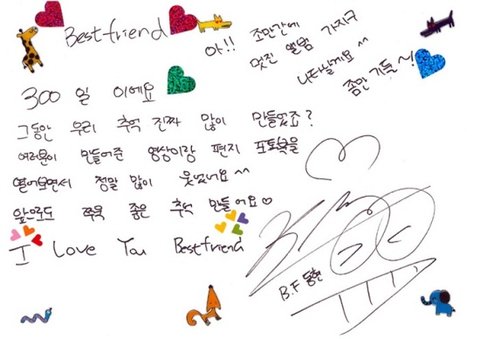 Bestfriend
아!! 조만간에
멋진 앨범 가지구
나타날게요 ^^
좀만 기둘~!
300일 이에요
그동안 우리 추억 진짜 많이 만들었죠?
여러분이 만들어준 영상이랑 편지 포토북을
열어보면서 정말 많이 웃었어요 ^^
앞으로도 쭈욱 좋은 추억 만들어요♡
I Love You Bestfriend
B.F 동현